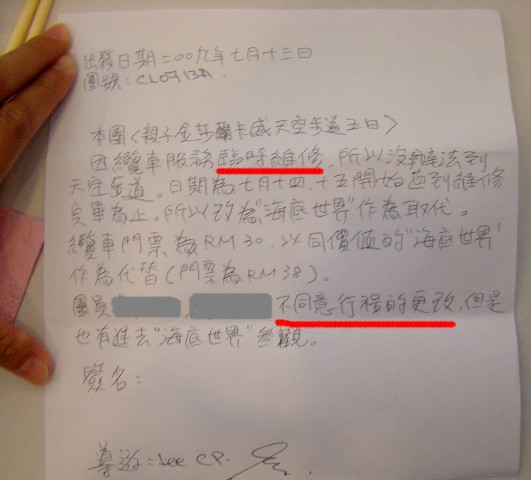 出發日期二00九年七月十三日
團號:CL0713A.
本團〈親子金莎蘭卡威天空步道五日〉
因纜車服務臨時維修,所以沒辦法到
天空步道。日期為七月十四、十五開始直到維修
完畢為止,所以改為"海底世界"作為取代。
纜車門票為RM30,以同價值的"海底世界"
作為代替(門票為RM38)。
團員 , 不同意行程的更改,但是
也有進去"海底世界"參觀。
簽名:
導游:Lee CP.